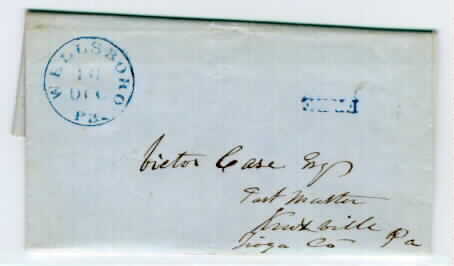 WELLSBORO
18
DEC
Pa.
FREE
Victor Case Esq
Post Master
Knoxville Pa
Tioga Co